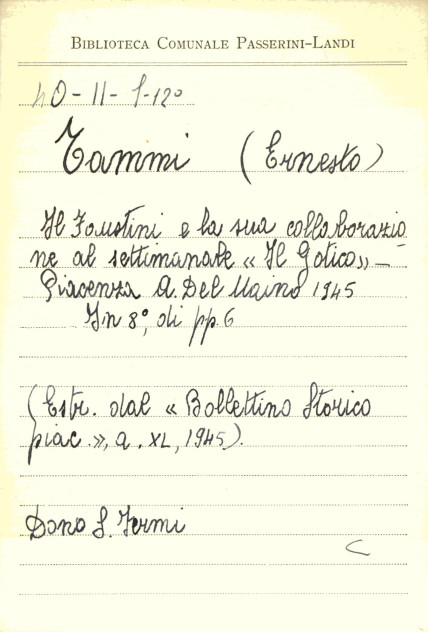 BIBLIOTECA COMUNALE PASSERINI-LANDI
40-II-f-120
Tammi (Ernesto)
Il Faustini e la sua collaborazio
ne al settimanale « Il Gotico» -
Piacenza A. Del Maino 1945
In 8°, di pp. 6
(Estr. dal « Bollettino Storico
piac.», a. XL, 1945).
Dono S. Fermi